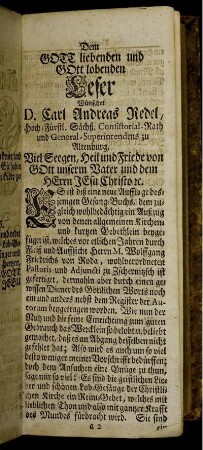 Dem
GOTT liebenden und
GOtt lobenden
Leser
Wünschet
D. Carl Andreas Redel,
Hoch-Fürstl. Sächß. Consistorial-Rath
und General-Superintendens zu
Altenburg,
Viel Seegen, Heil und Friede von
GOtt unserm Vater und dem
HErrn JEsu Christo ꝛc.
ES ist dieß eine neue Aufflage desje-
jenigen Gesang-Buchs, dem zu-
gleich wohlbedächtig ein Auszug
von denen allgemeinen Kirchen-
und kurtzen Gebethlein beyge-
füget ist, welches vor etlichen Jahren durch
Fleiß und Auffsicht Herrn M. Wolffgang
Friedrichs von Roda, wohlverordneten
Pastoris und Adjuncti zu Zschernitzsch ist
gefertiget, dermahln aber durch einen ge-
wissen Diener des Göttlichen Worts noch
ein und anders nebst dem Register der Au-
torum beygetragen worden. Wie nun der
Nutz und die feine Einrichtung zum guten
Gebrauch das Wercklein so belobt u. beliebt
gemachet, daß es an Abgang desselben nicht
gefehlet hat; Also wird es auch um so viel
desto weniger meiner Vorschrifft bedürffen;
doch dem Ansuchen eine Gnüge zu thun,
sage nur so viel: Es sind die geistlichen Lie-
der und schönen Lob-Gesänge der Christli-
chen Kirche ein Reim-Gebet, welches mit
lieblichen Thon und also mit gantzer Krafft
des Mundes fürbracht wird. Sie sind
a 2